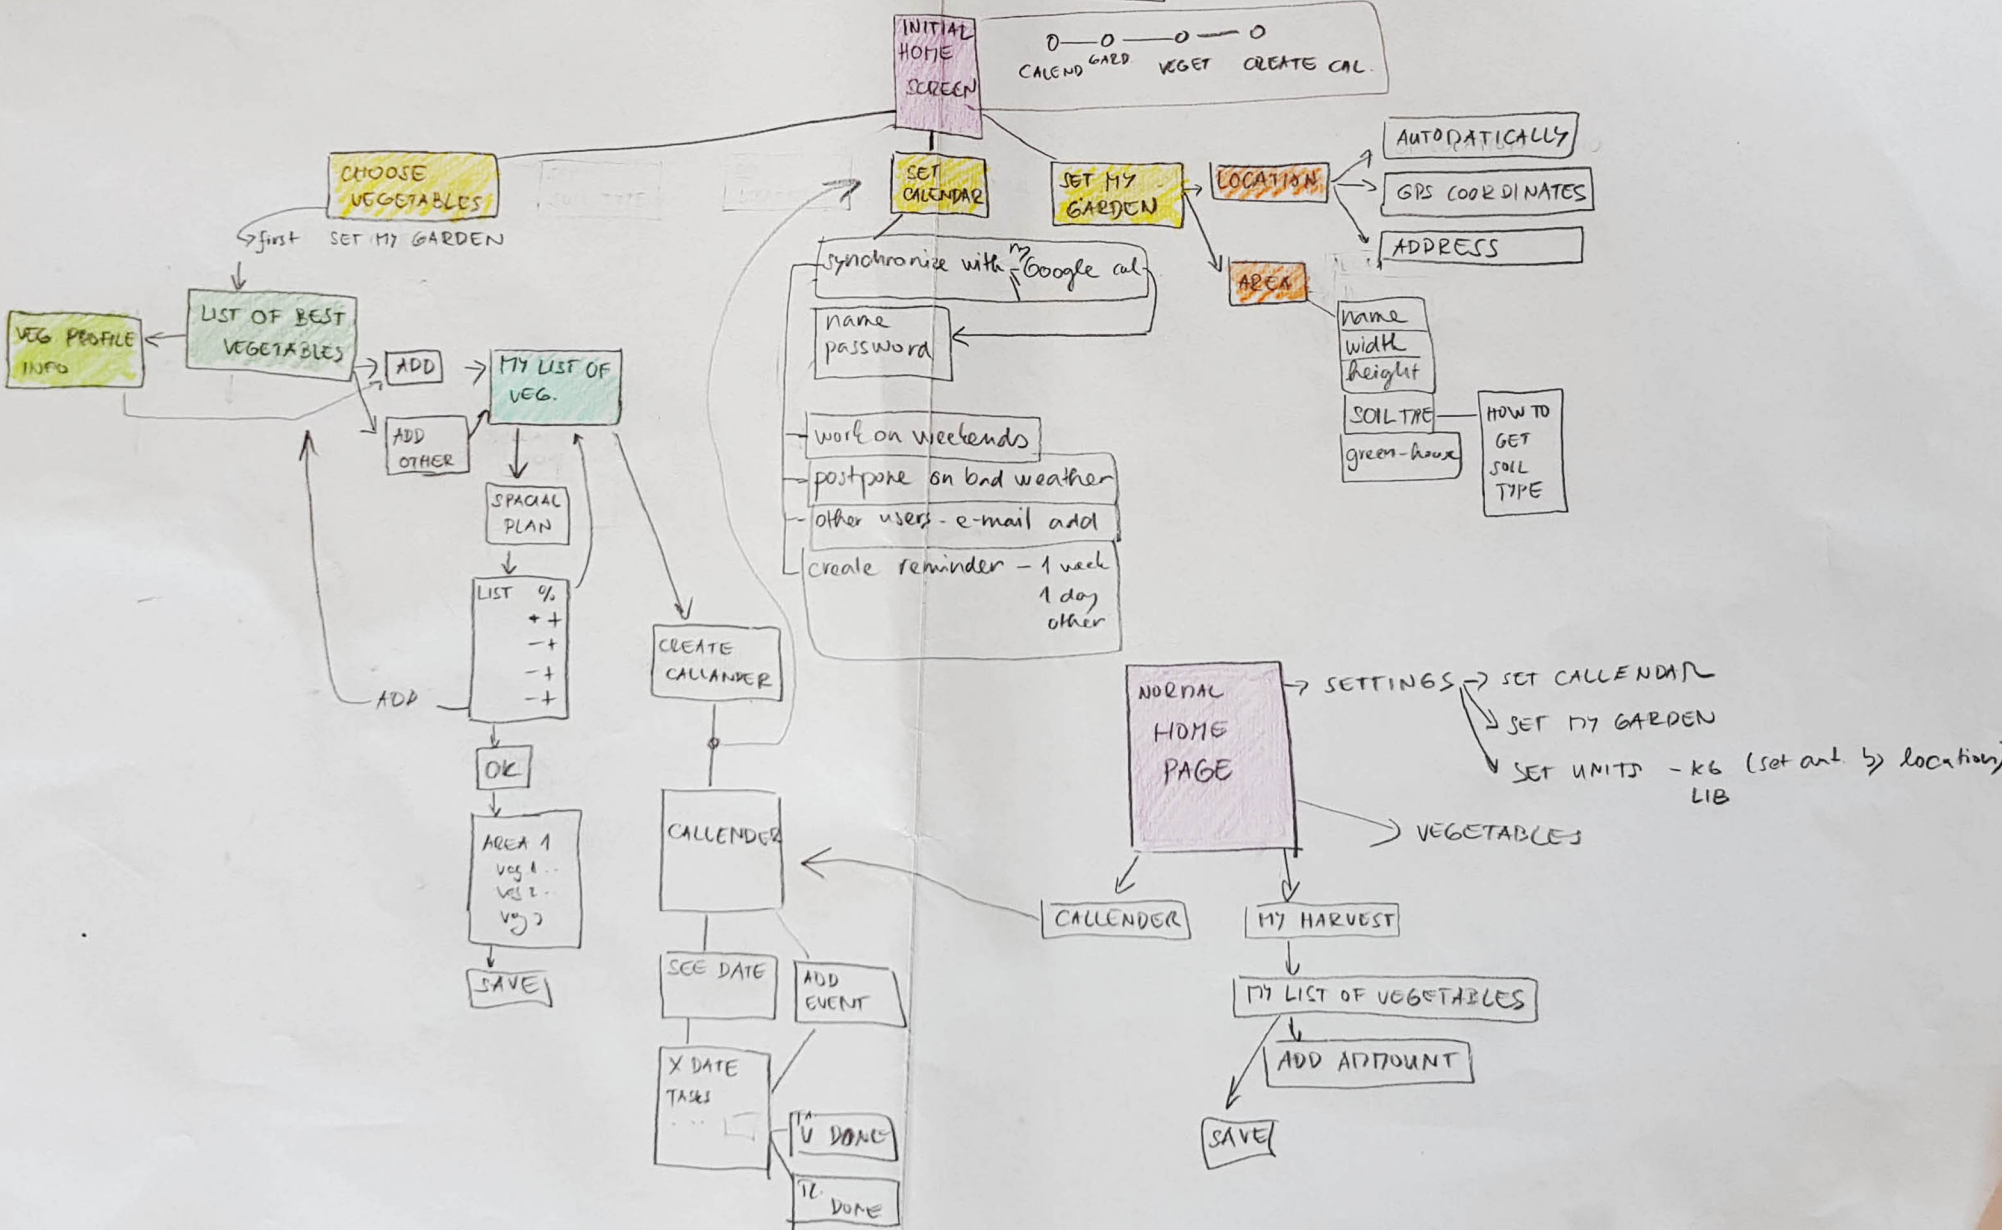 INITIAL
HOME
SCREEN
CALEND GARD. VEGET CREATE CAL.
CHOOSE
VEGETABLES
first SET MY GARDEN
LIST OF BEST
VEGETABLES
VEG PROFILE
INFO
ADD
ADD
OTHER
MY LIST OF
VEG.
SPACIAL
PLAN
LIST %
+ +
- +
- +
- +
ADD
OK
AREA 1
veg 1..
veg 2..
veg 3
SAVE
CREATE
CALLANDER
CALLENDER
SEE DATE
ADD
EVENT
X DATE
TASKS
...
DONE
DONE
SET
CALENDAR
synchronize with my Google cal
name
password
work on weekends
postpone on bad weather
other users - e-mail add
create reminder - 1 week
1 day
other
SET MY
GARDEN
LOCATION
AUTOMATICALLY
GPS COORDINATES
ADDRESS
AREA
name
width
height
SOIL TYPE
green-house
HOW TO
GET
SOIL
TYPE
NORMAL
HOME
PAGE
SETTINGS
SET CALLENDAR
SET MY GARDEN
SET UNITS - KG (set aut. by location)
LIB
VEGETABLES
CALLENDER
MY HARVEST
MY LIST OF VEGETABLES
ADD AMMOUNT
SAVE